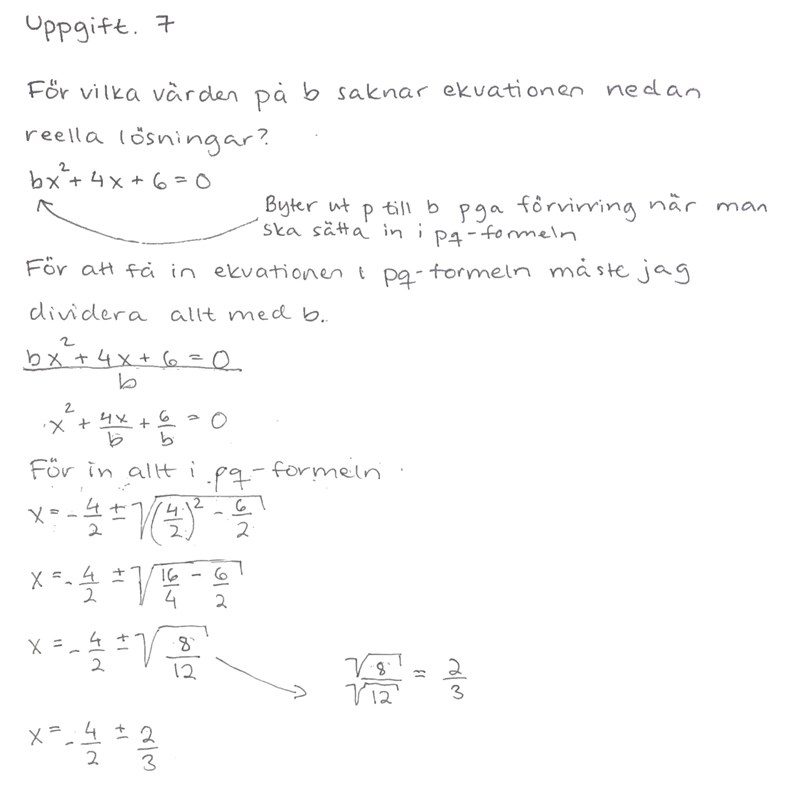 Uppgift. 7
För vilka värden på b saknar ekvationen nedan
reella lösningar?
bx² + 4x + 6 = 0
Byter ut p till b pga förvirring när man
ska sätta in i pq-formeln
För att få in ekvationen i pq-formeln måste jag
dividera allt med b.
(bx² + 4x + 6 = 0)/b
x² + 4x/b + 6/b = 0
För in allt i pq-formeln
x = -4/2 ± √((4/2)² - 6/2)
x = -4/2 ± √(16/4 - 6/2)
x = -4/2 ± √(8/12)
√8/√12 = 2/3
x = -4/2 ± 2/3